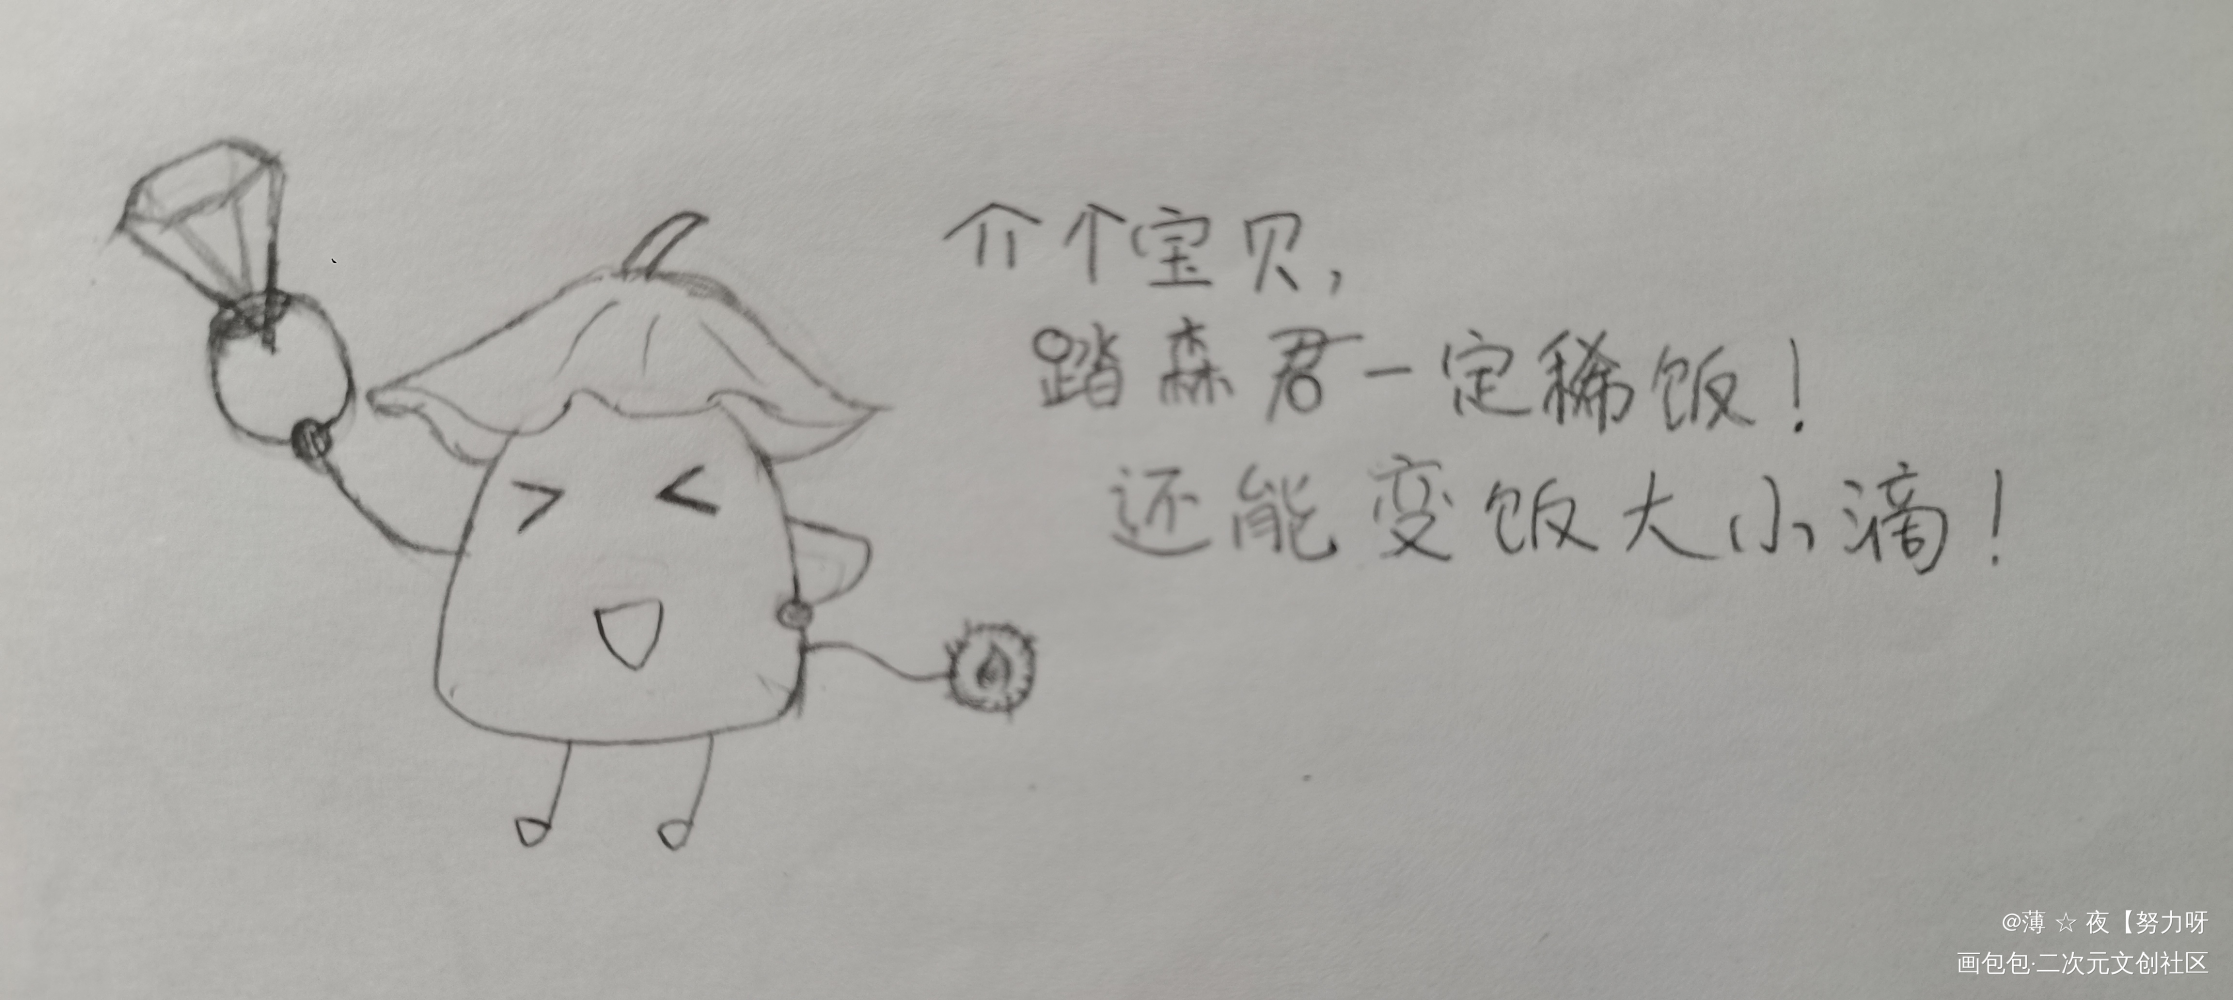 介个宝贝，
踏森君一定稀饭！
还能变饭大小滴！
@薄 ☆ 夜【努力呀
画包包·二次元文创社区